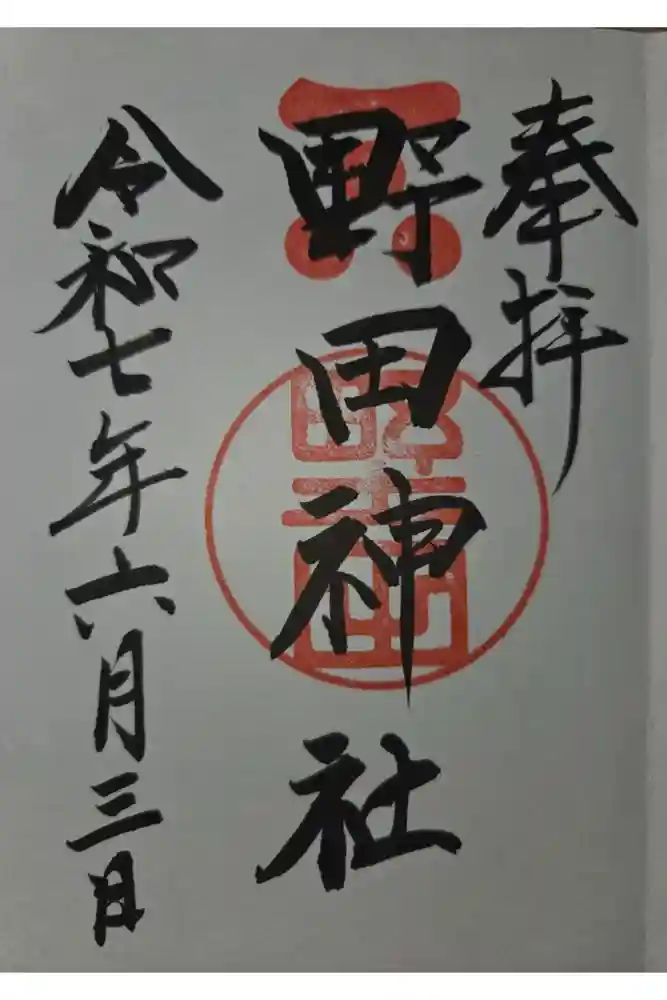 奉拝
野田神社
令和七年六月三日